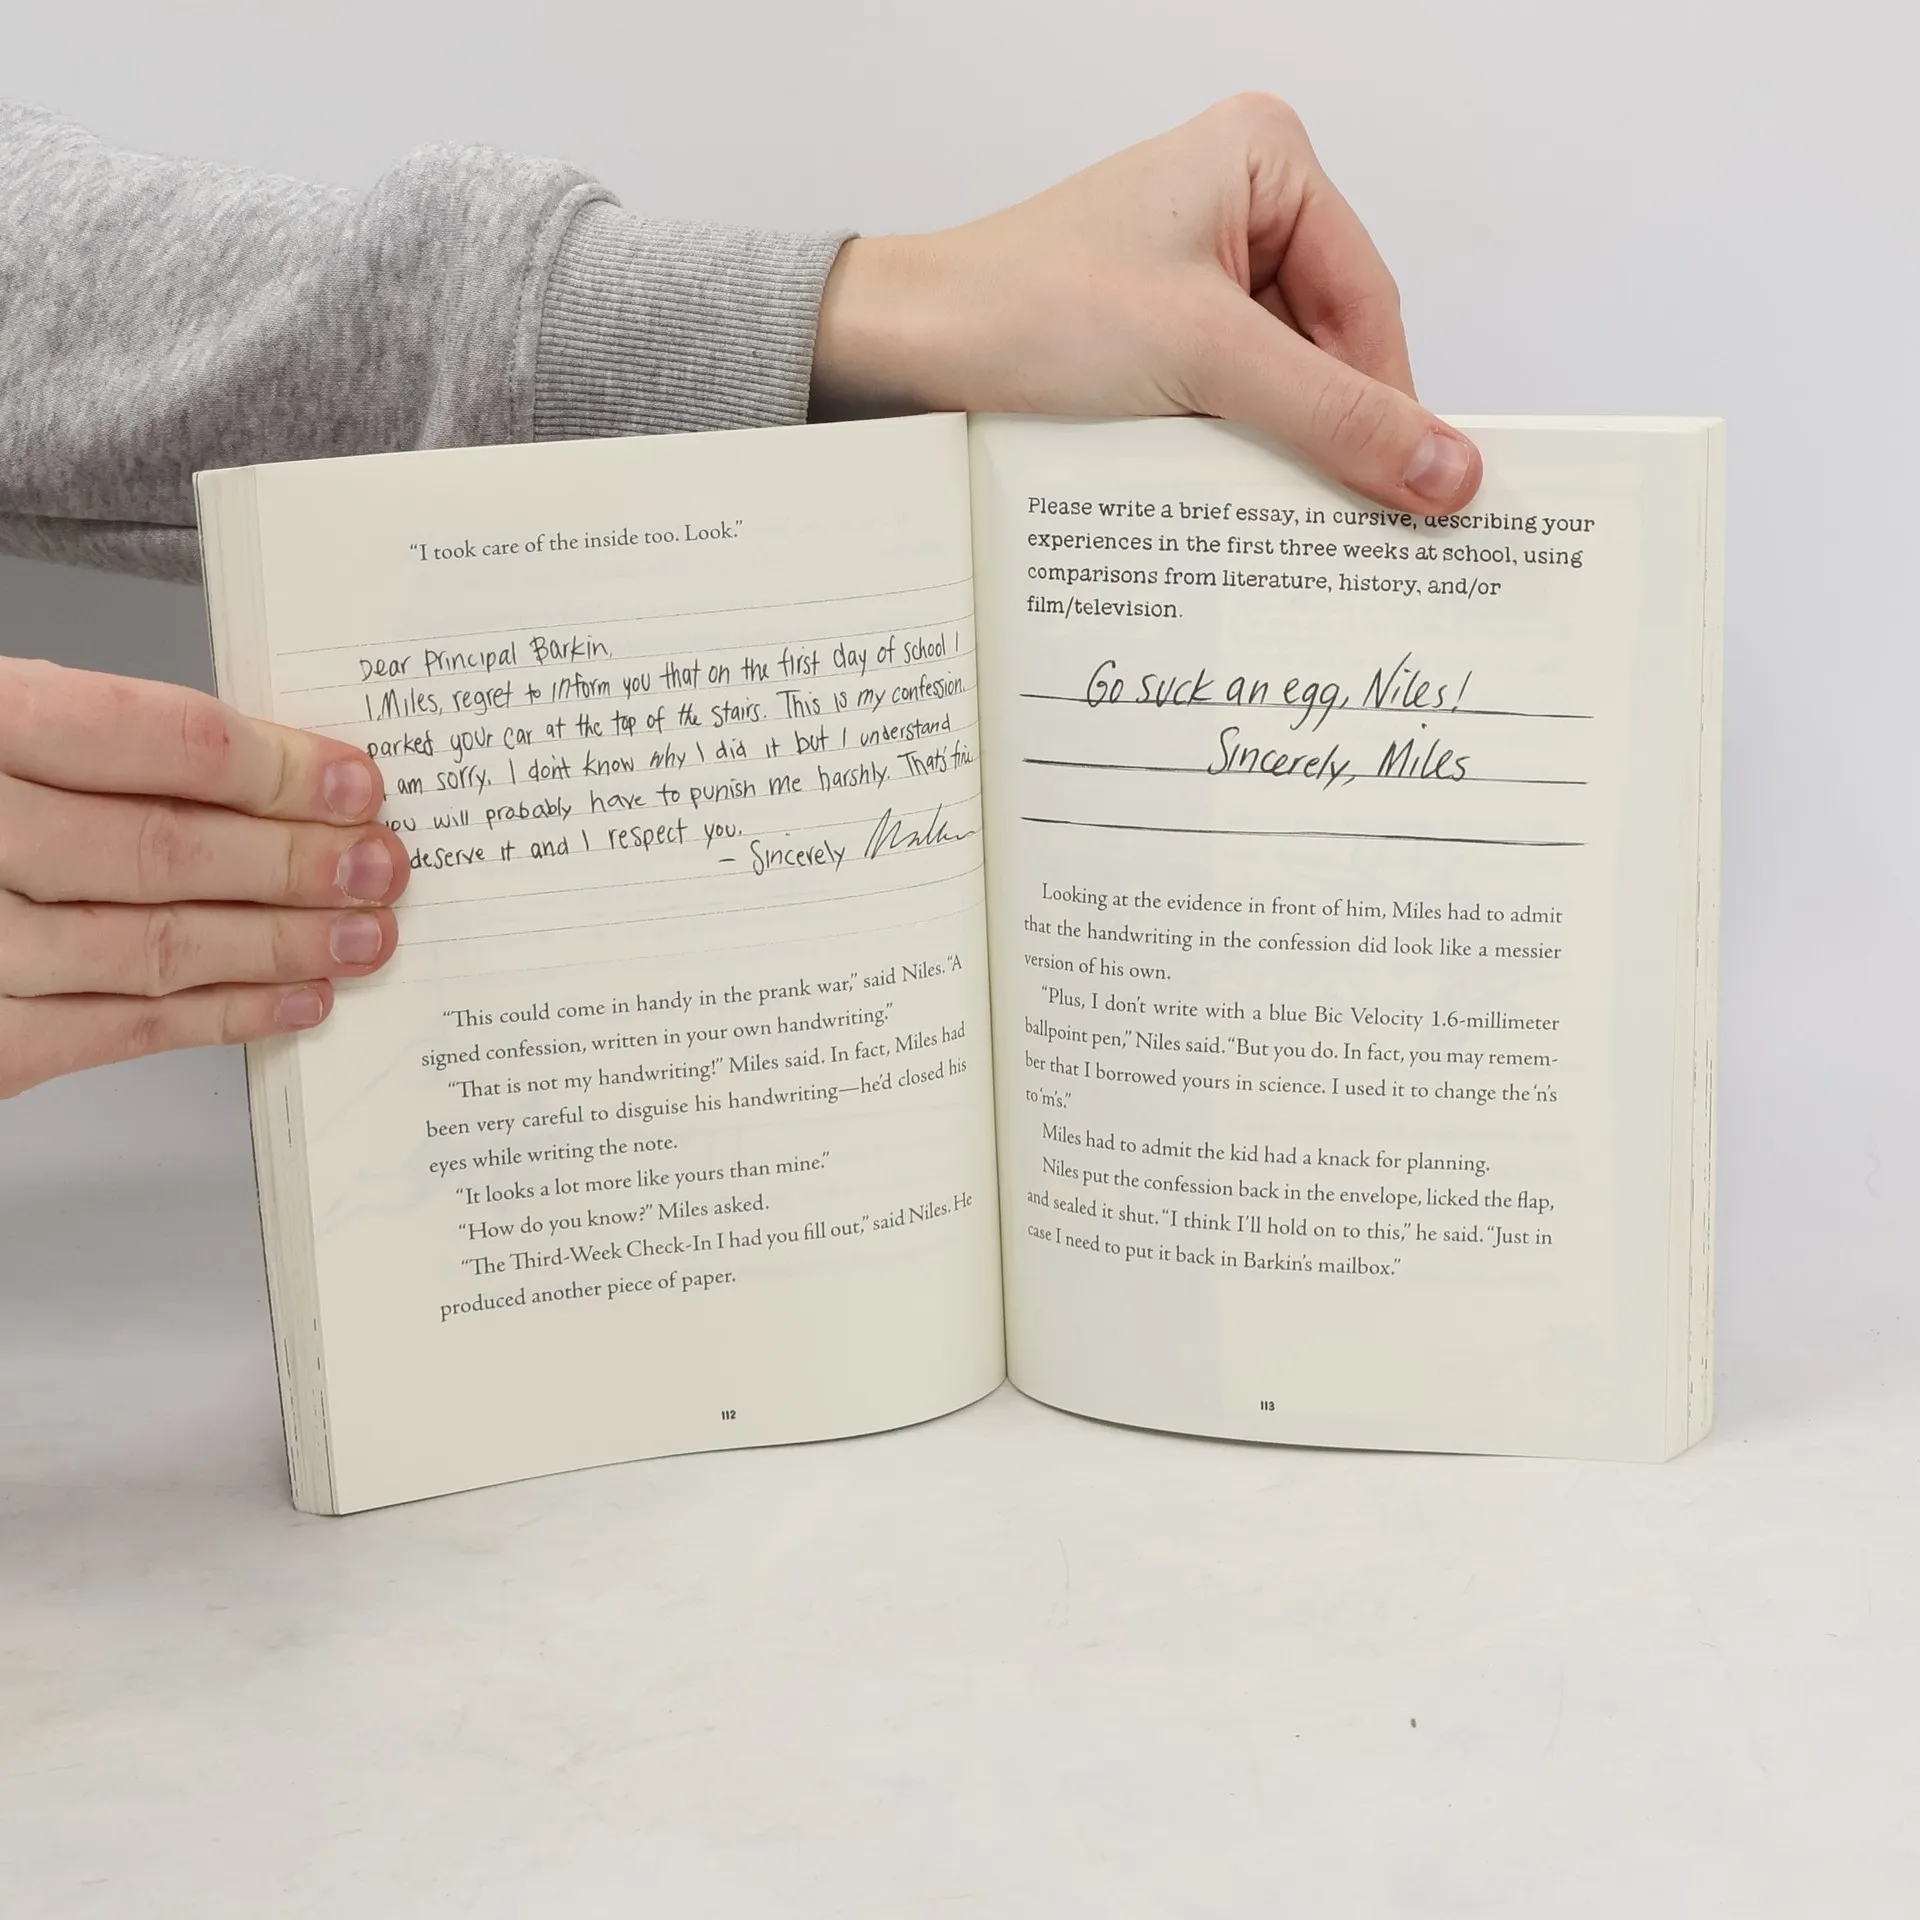 “I took care of the inside too. Look.”
Dear Principal Barkin,
I, Miles, regret to inform you that on the first day of school I
parked your car at the top of the stairs. This is my confession.
am sorry. I don't know why I did it but I understand
you will probably have to punish me harshly. That's fine
deserve it and I respect you.
– Sincerely
“This could come in handy in the prank war,” said Niles. “A
signed confession, written in your own handwriting.”
“That is not my handwriting!” Miles said. In fact, Miles had
been very careful to disguise his handwriting—he'd closed his
eyes while writing the note.
“It looks a lot more like yours than mine.”
“How do you know?” Miles asked.
“The Third-Week Check-In I had you fill out,” said Niles. He
produced another piece of paper.
112
Please write a brief essay, in cursive, describing your
experiences in the first three weeks at school, using
comparisons from literature, history, and/or
film/television.
Go suck an egg, Niles!
Sincerely, Miles
Looking at the evidence in front of him, Miles had to admit
that the handwriting in the confession did look like a messier
version of his own.
“Plus, I don't write with a blue Bic Velocity 1.6-millimeter
ballpoint pen,” Niles said. “But you do. In fact, you may remem-
ber that I borrowed yours in science. I used it to change the ‘n’s
to ‘m’s.”
Miles had to admit the kid had a knack for planning.
Niles put the confession back in the envelope, licked the flap,
and sealed it shut. “I think I'll hold on to this,” he said. “Just in
case I need to put it back in Barkin's mailbox.”
113